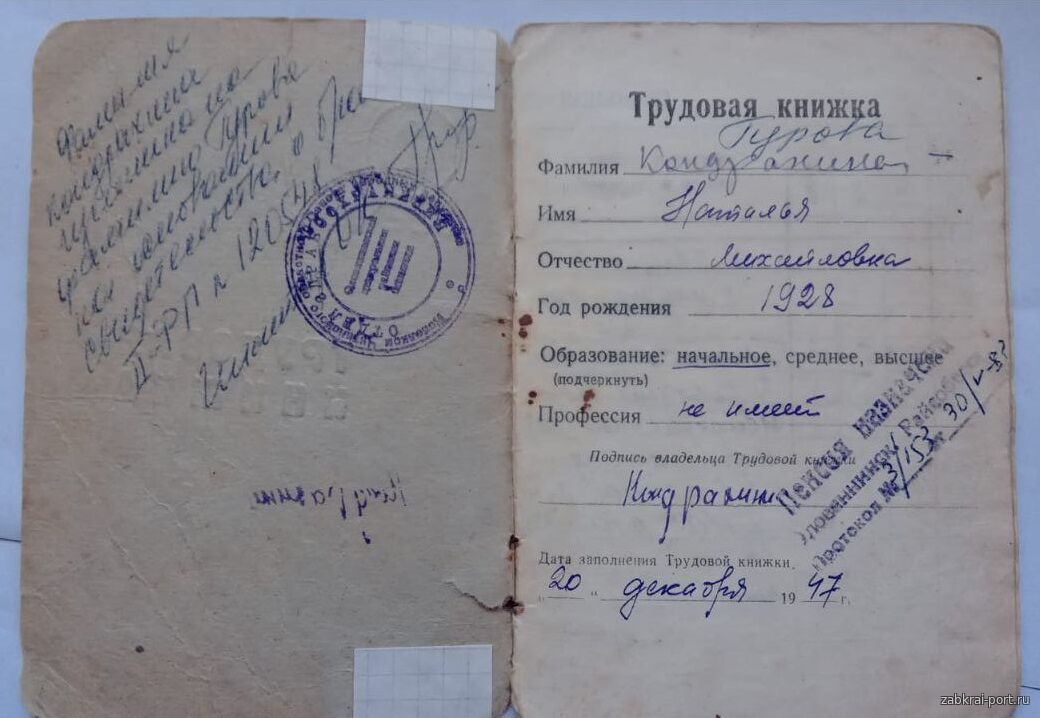 Фамилия
Кондрахина
изменена на
фамилию Гурова
на основании
свидетельства о браке
II-ФП № 120548
ОТДЕЛ
Кондрахин
Трудовая книжка
Гурова
Фамилия Кондрахина
Имя Наталья
Отчество Михайловна
Год рождения 1928
Образование: начальное, среднее, высшее
(подчеркнуть)
Профессия не имеет
Подпись владельца Трудовой книжки
Кондрахина
Пенсия назначена
Протокол № 3/153 30/V-83
Дата заполнения Трудовой книжки.
"20" декабря 1947 г.
zabkrai-port.ru